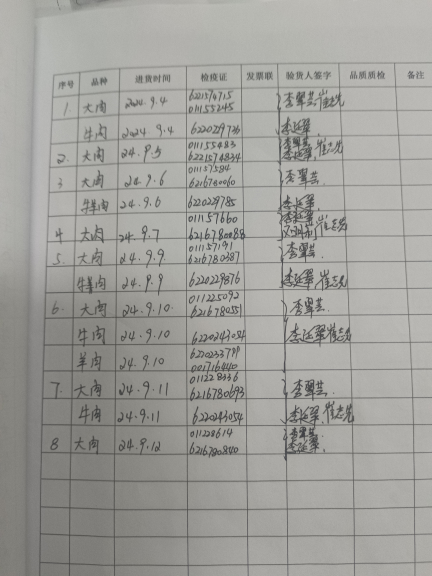 序号 品种 进货时间 检疫证 发票联 验货人签字 品质质检 备注
1. 大肉 2024.9.4 6221574715 李翠芸 崔志先
01155245
牛肉 2024.9.4 6220229736 李廷翠
2. 大肉 24.9.5 01155483 李翠芸 崔志先
6221574834 李廷翠
3 大肉 24.9.6 01157584 李翠芸
6216780060
牛羊肉 24.9.6 6220229785 李廷翠
4 大肉 24.9.7 01157660 李廷翠 崔志先
6216780088
5. 大肉 24.9.9 01157191 李翠芸
6216780387
牛羊肉 24.9.9 6220229876 李廷翠 崔志先
6. 大肉 24.9.10 011225092 李翠芸
6216780551
牛肉 24.9.10 6220243054 李廷翠 崔志先
羊肉 24.9.10 6220233799
0017164440
7. 大肉 24.9.11 011228336 李翠芸
6216780693
牛肉 24.9.11 6220243054 李廷翠 崔志先
8 大肉 24.9.12 011228614 李翠芸
6216780840 李廷翠